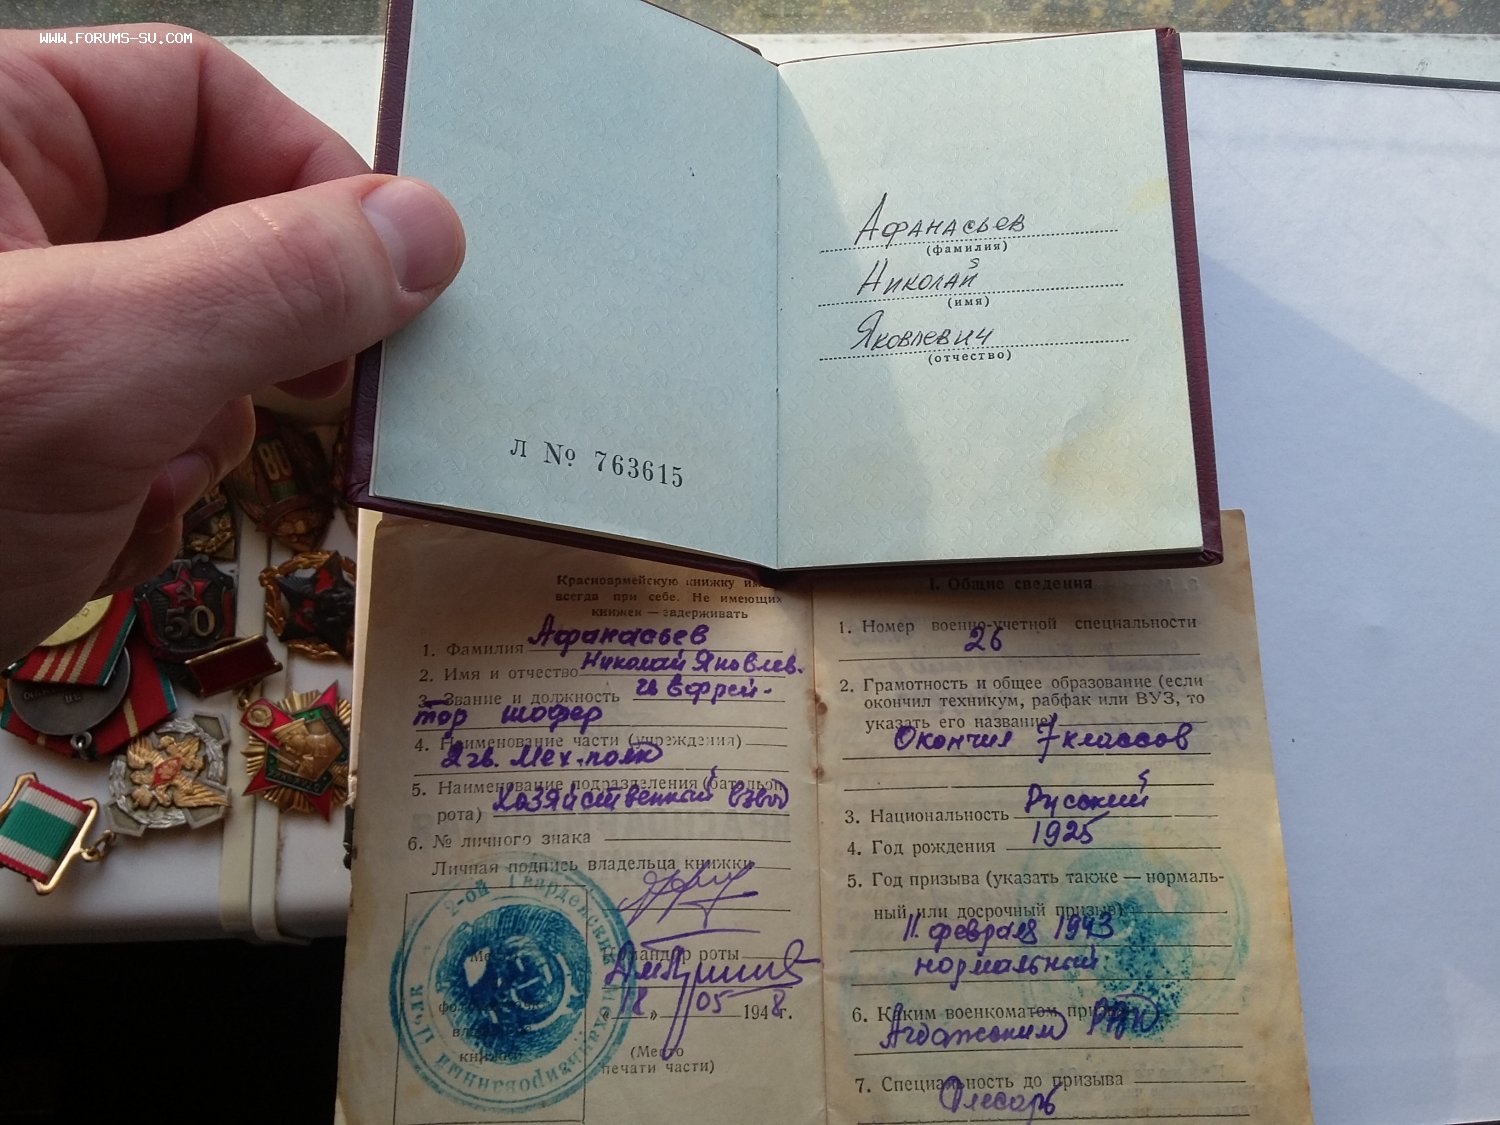 WWW.FORUMS-SU.COM
Афанасьев
(фамилия)
Николай
(имя)
Яковлевич
(отчество)
Л № 763615
80
50
Красноармейскую книжку
всегда при себе. Не имеющих
книжек — задерживать
1. Фамилия Афанасьев
2. Имя и отчество Николай Яковлев.
3. Звание и должность гв ефрей-
тор шофер
4. Наименование части (учреждения)
2 гв. Мех. полк
5. Наименование подразделения (батальон
рота) Хозяйственный взвод
6. № личного знака
Личная подпись владельца книжки
Командир роты
„18" 05 1948 г.
(Место
печати части)
2-ой Гвардейский Механизированный полк
I. Общие сведения
1. Номер военно-учетной специальности
26
2. Грамотность и общее образование (если
окончил техникум, рабфак или ВУЗ, то
указать его название)
Окончил 7 классов
3. Национальность Русский
4. Год рождения 1925
5. Год призыва (указать также — нормаль-
ный или досрочный призыв)
11 февраля 1943
нормальный
6. Каким военкоматом призван
РВК
7. Специальность до призыва
Слесарь